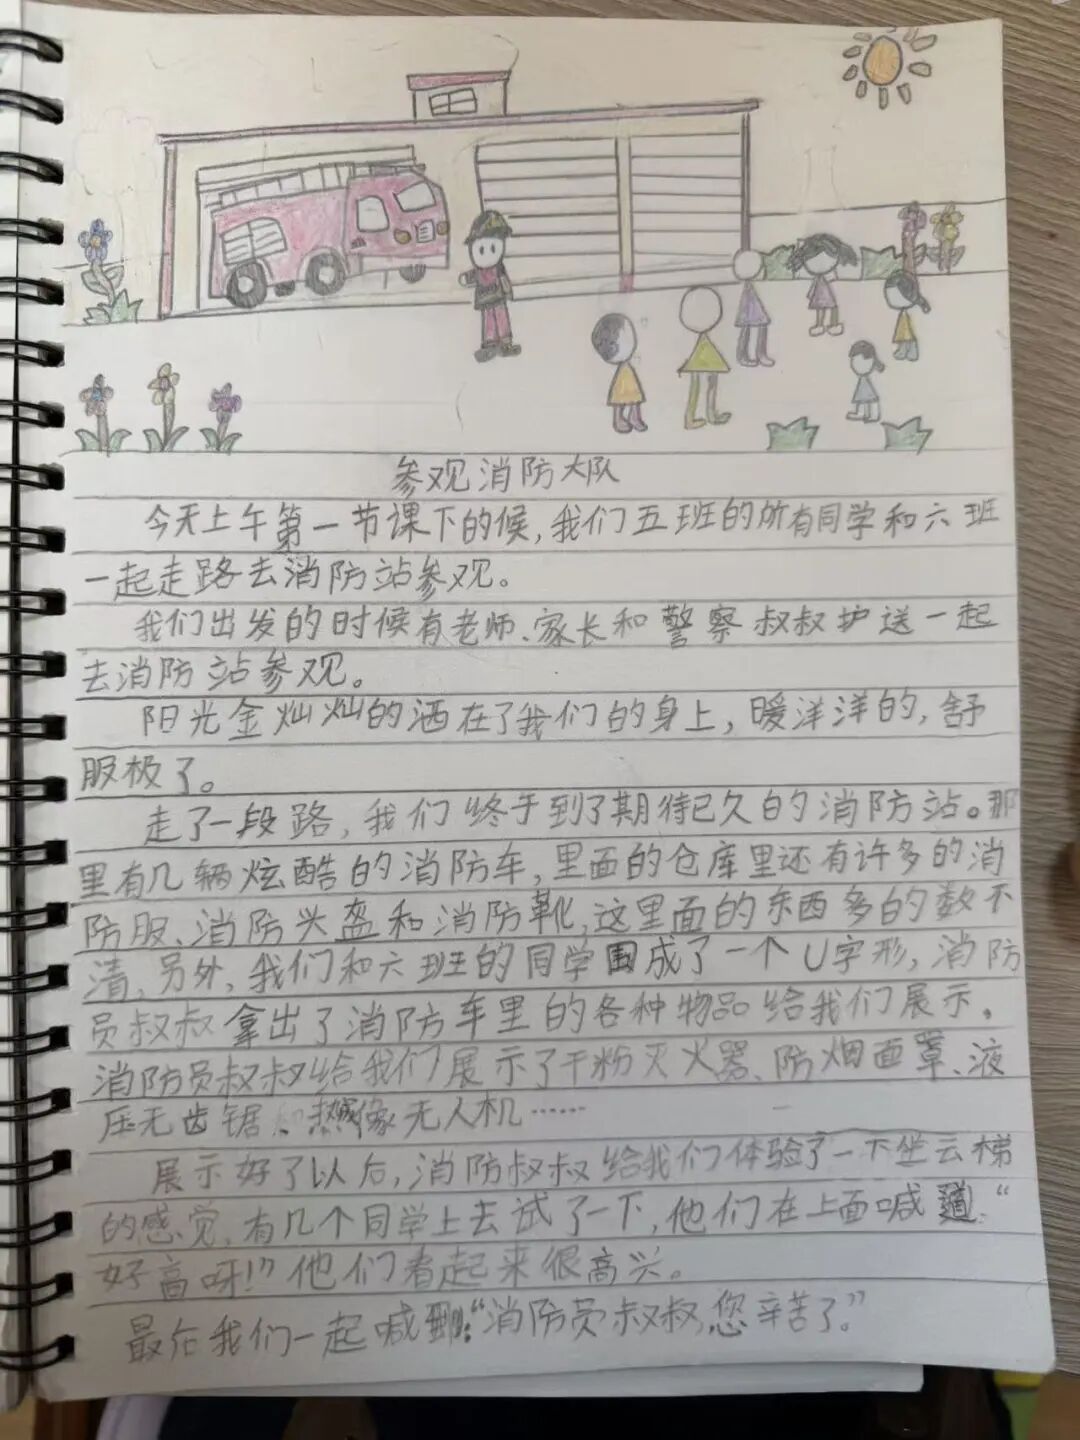 参观消防大队
今天上午第一节课下的候,我们五班的所有同学和六班
一起走路去消防站参观。
我们出发的时候有老师、家长和警察叔叔护送一起
去消防站参观。
阳光金灿灿的洒在了我们的身上,暖洋洋的,舒
服极了。
走了一段路,我们终于到了期待已久的消防站。那
里有几辆炫酷的消防车,里面的仓库里还有许多的消
防服、消防头盔和消防靴,这里面的东西多的数不
清,另外,我们和六班的同学围成了一个U字形,消防
员叔叔拿出了消防车里的各种物品给我们展示。
消防员叔叔给我们展示了干粉灭火器、防烟面罩、液
压无齿锯、热成像无人机……
展示好了以后,消防叔叔给我们体验了一下坐云梯
的感觉,有几个同学上去试了一下,他们在上面喊道:“
好高呀!”他们看起来很高兴。
最后我们一起喊到:“消防员叔叔,您辛苦了。”